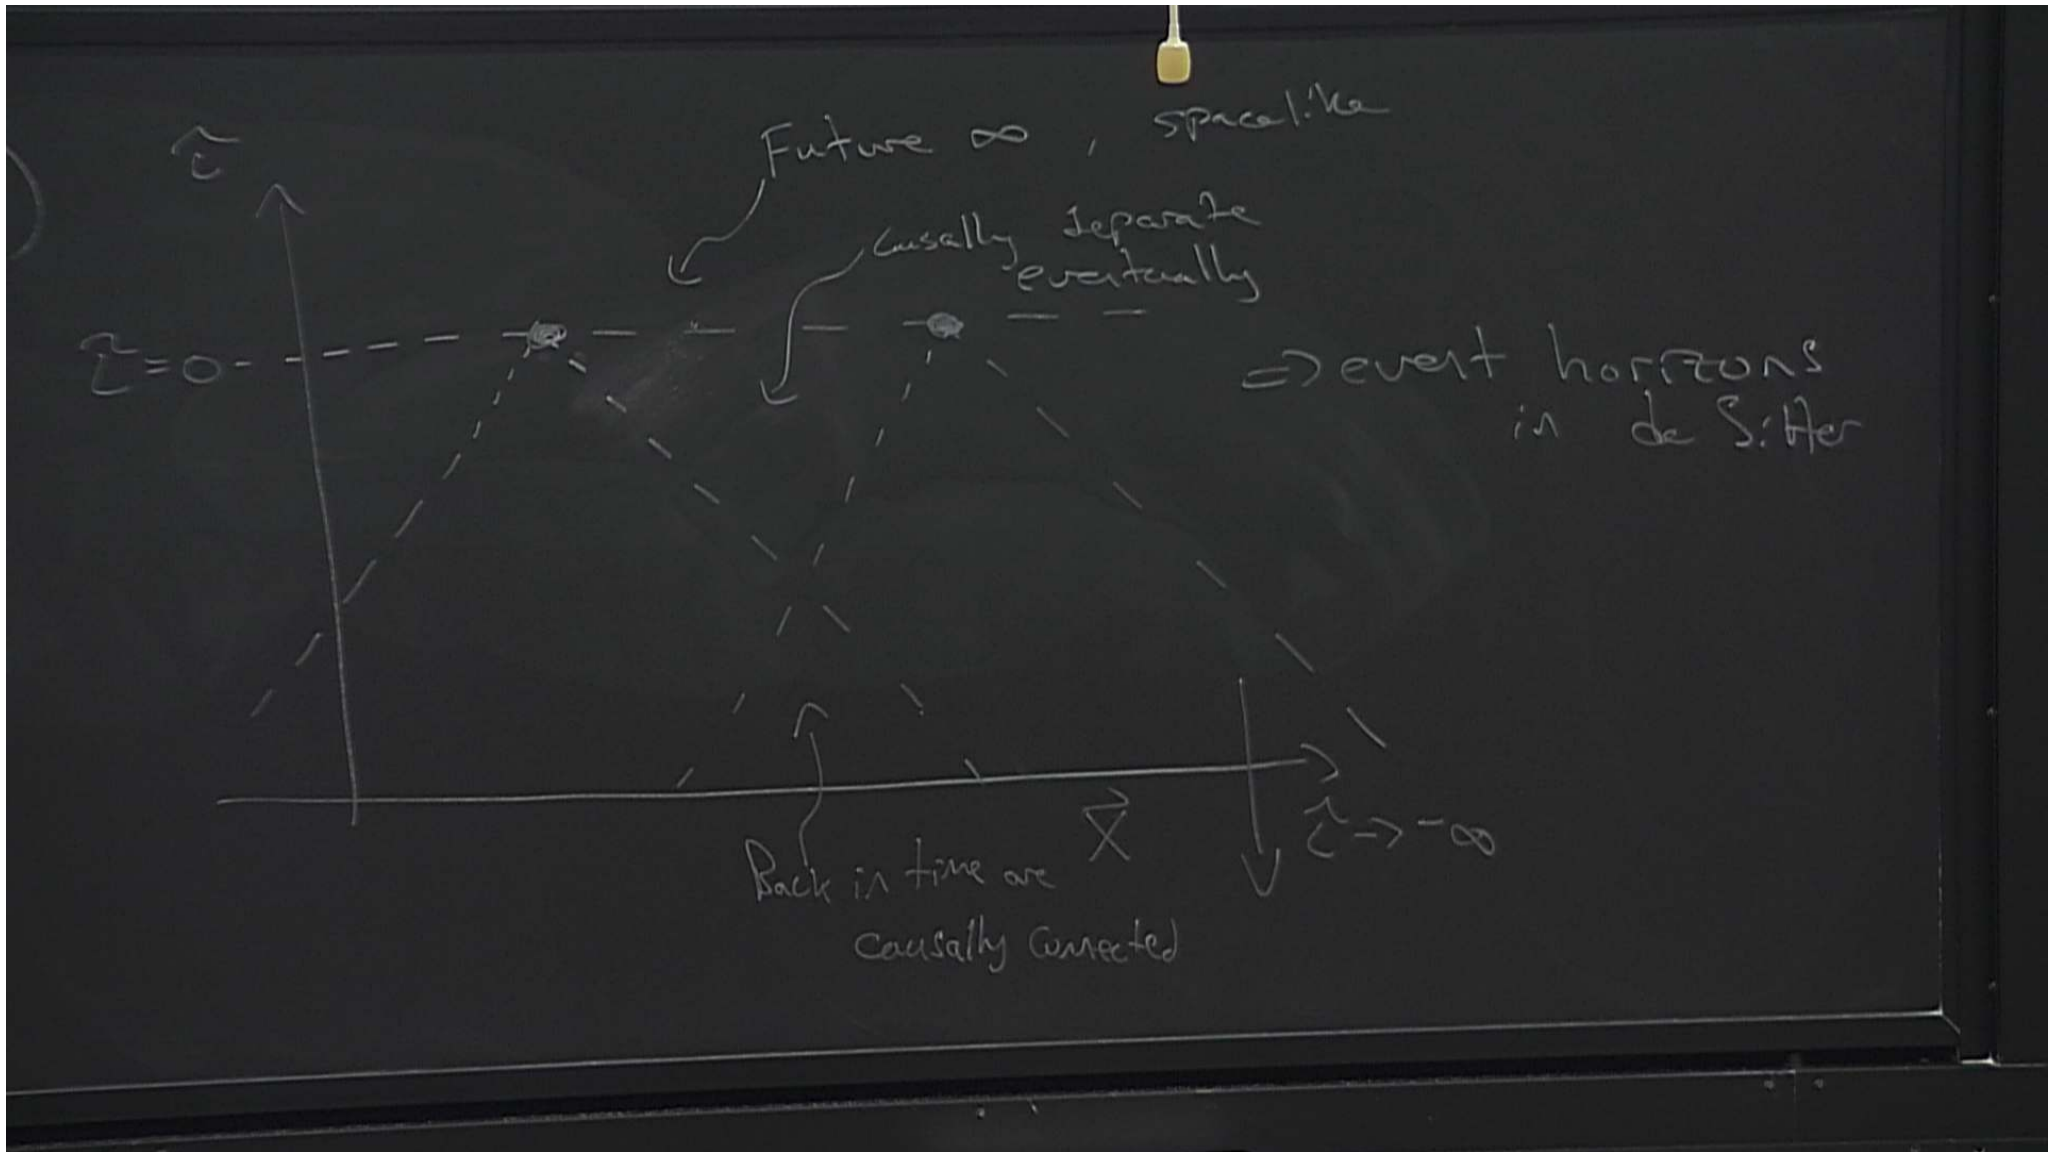 τ̃
Future ∞ , spacelike
Causally separate
eventually
τ̃=0
=> event horizons
in de Sitter
x⃗
τ̃ -> -∞
Back in time are
causally connected